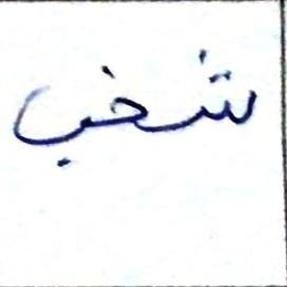 شخب